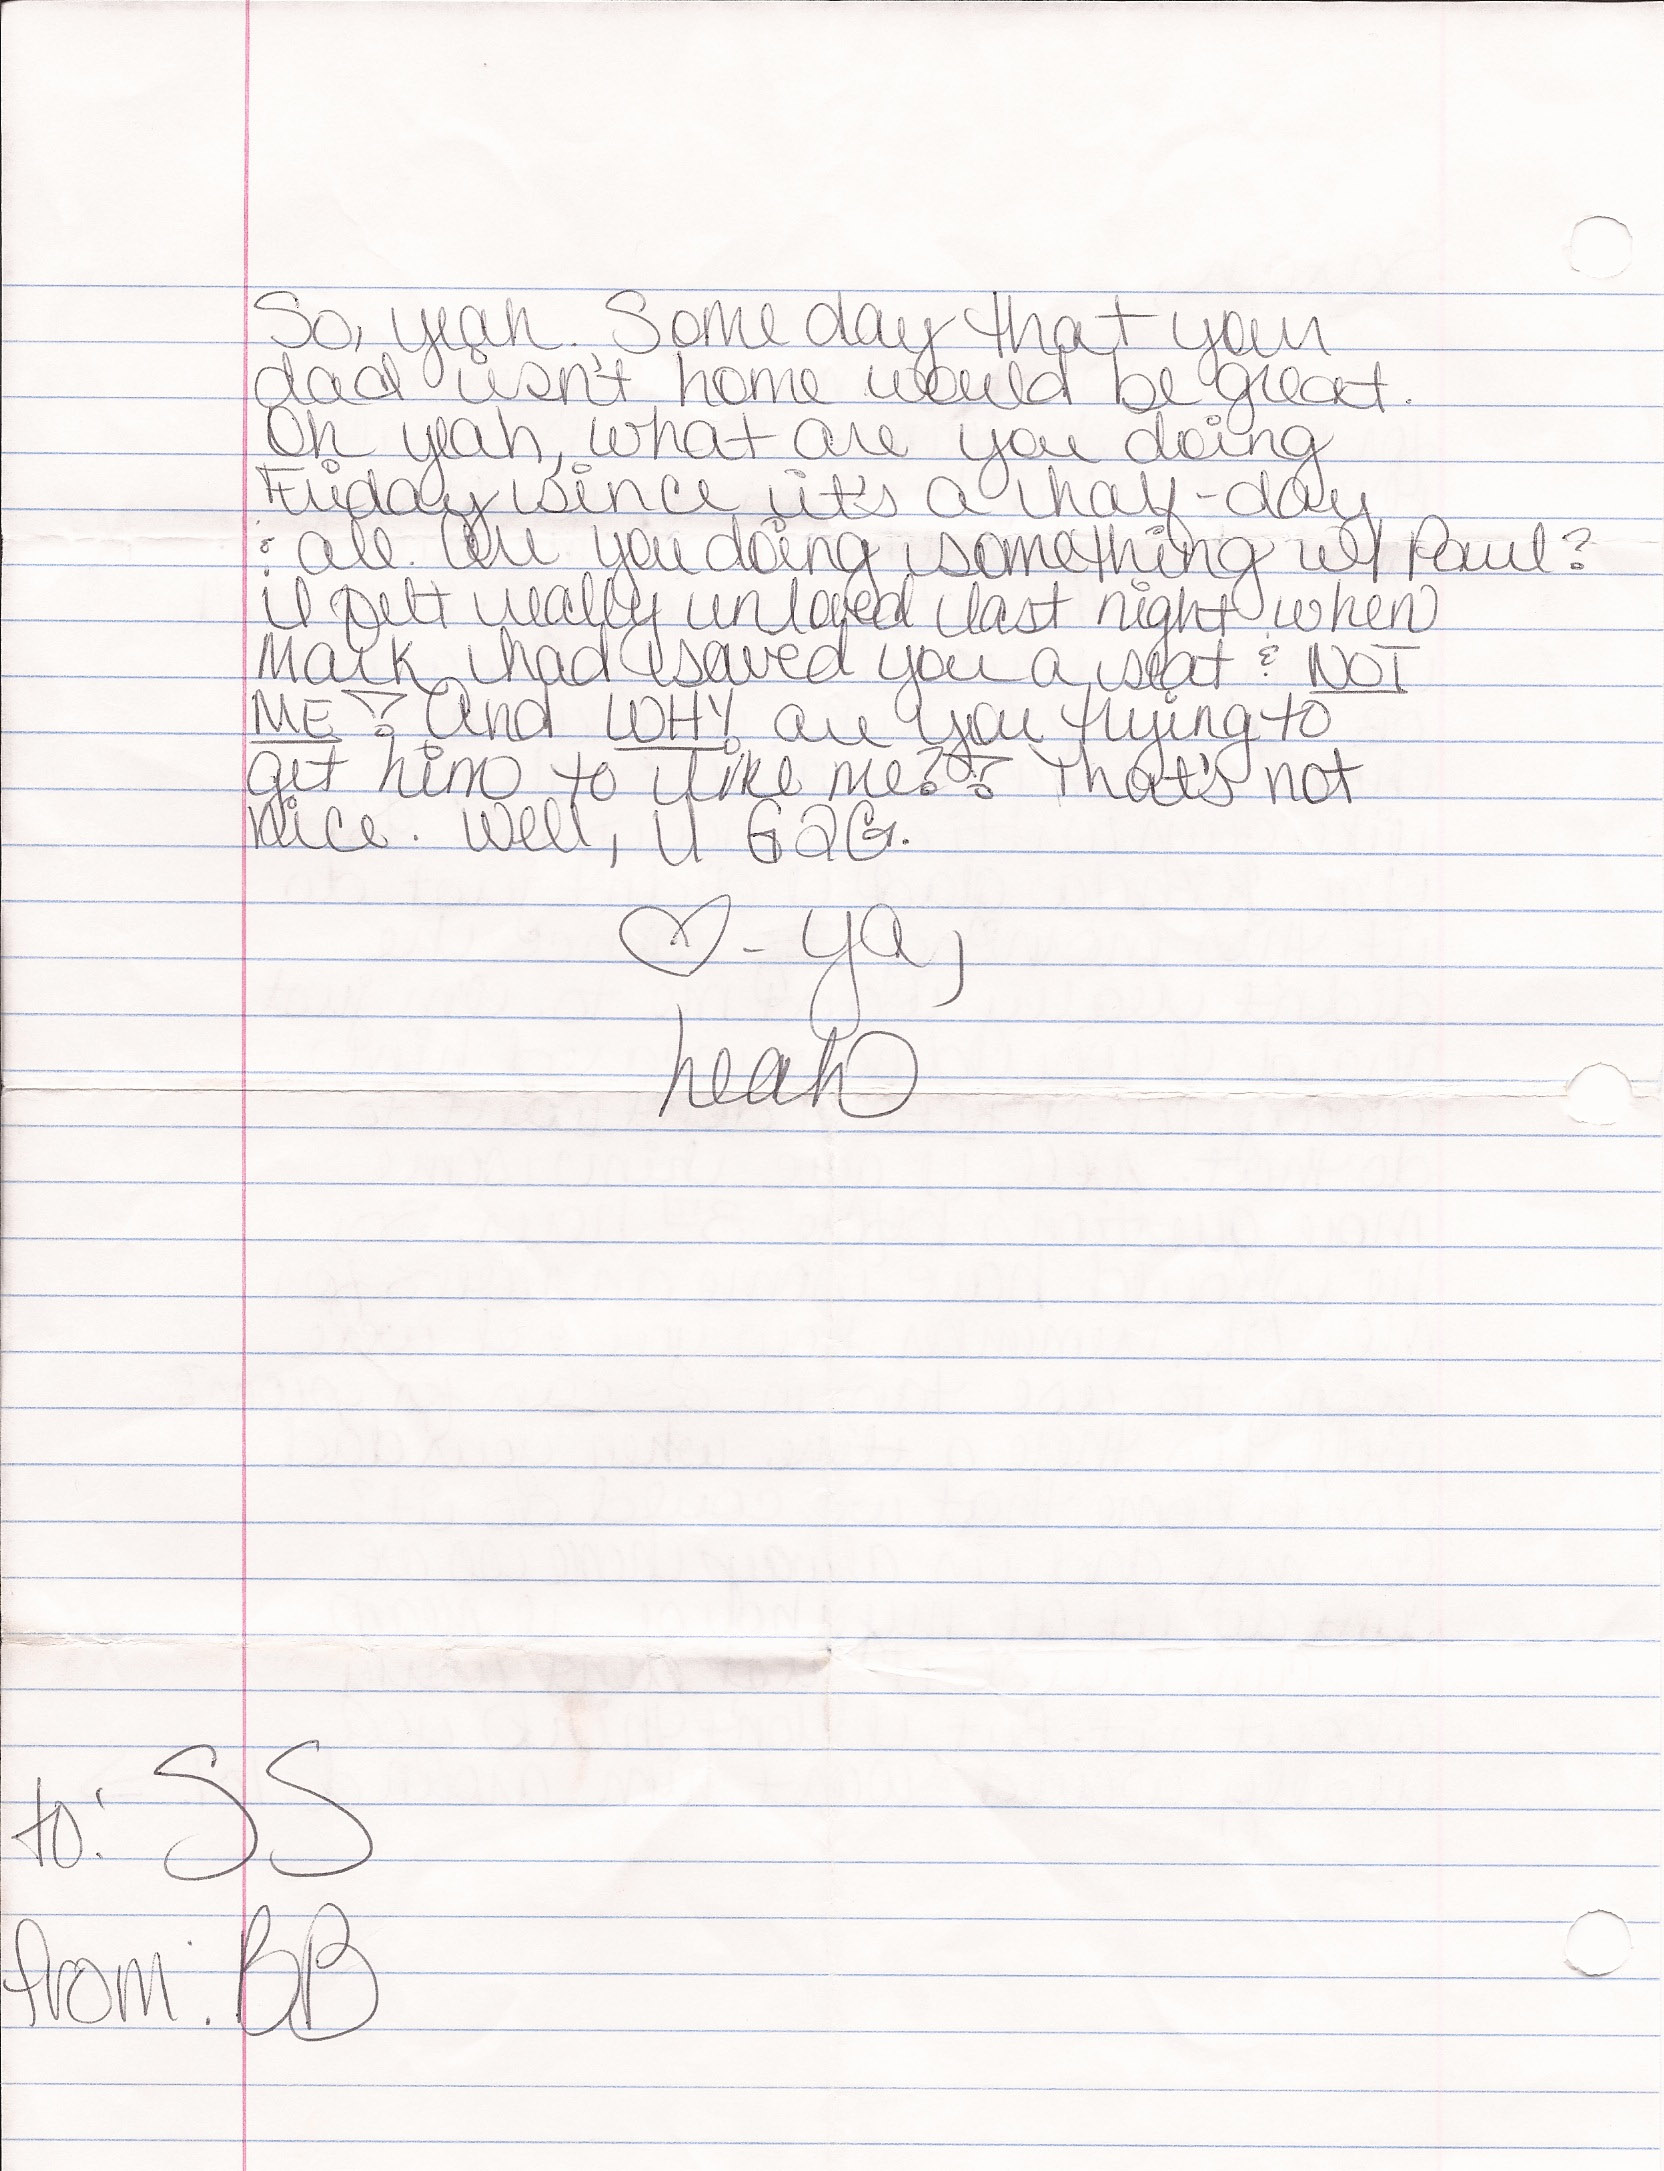 So, yeah. Some day that your
dad isn't home would be great.
Oh yeah, what are you doing
Friday since it's a half-day
& all. Are you doing something w/ Paul?
I felt really unloved last night when
Mark had saved you a seat & NOT
ME! And WHY are you trying to
get him to like me?! That's not
nice. Well, I G2G.
♡-ya,
Leah
to: SS
from: BB